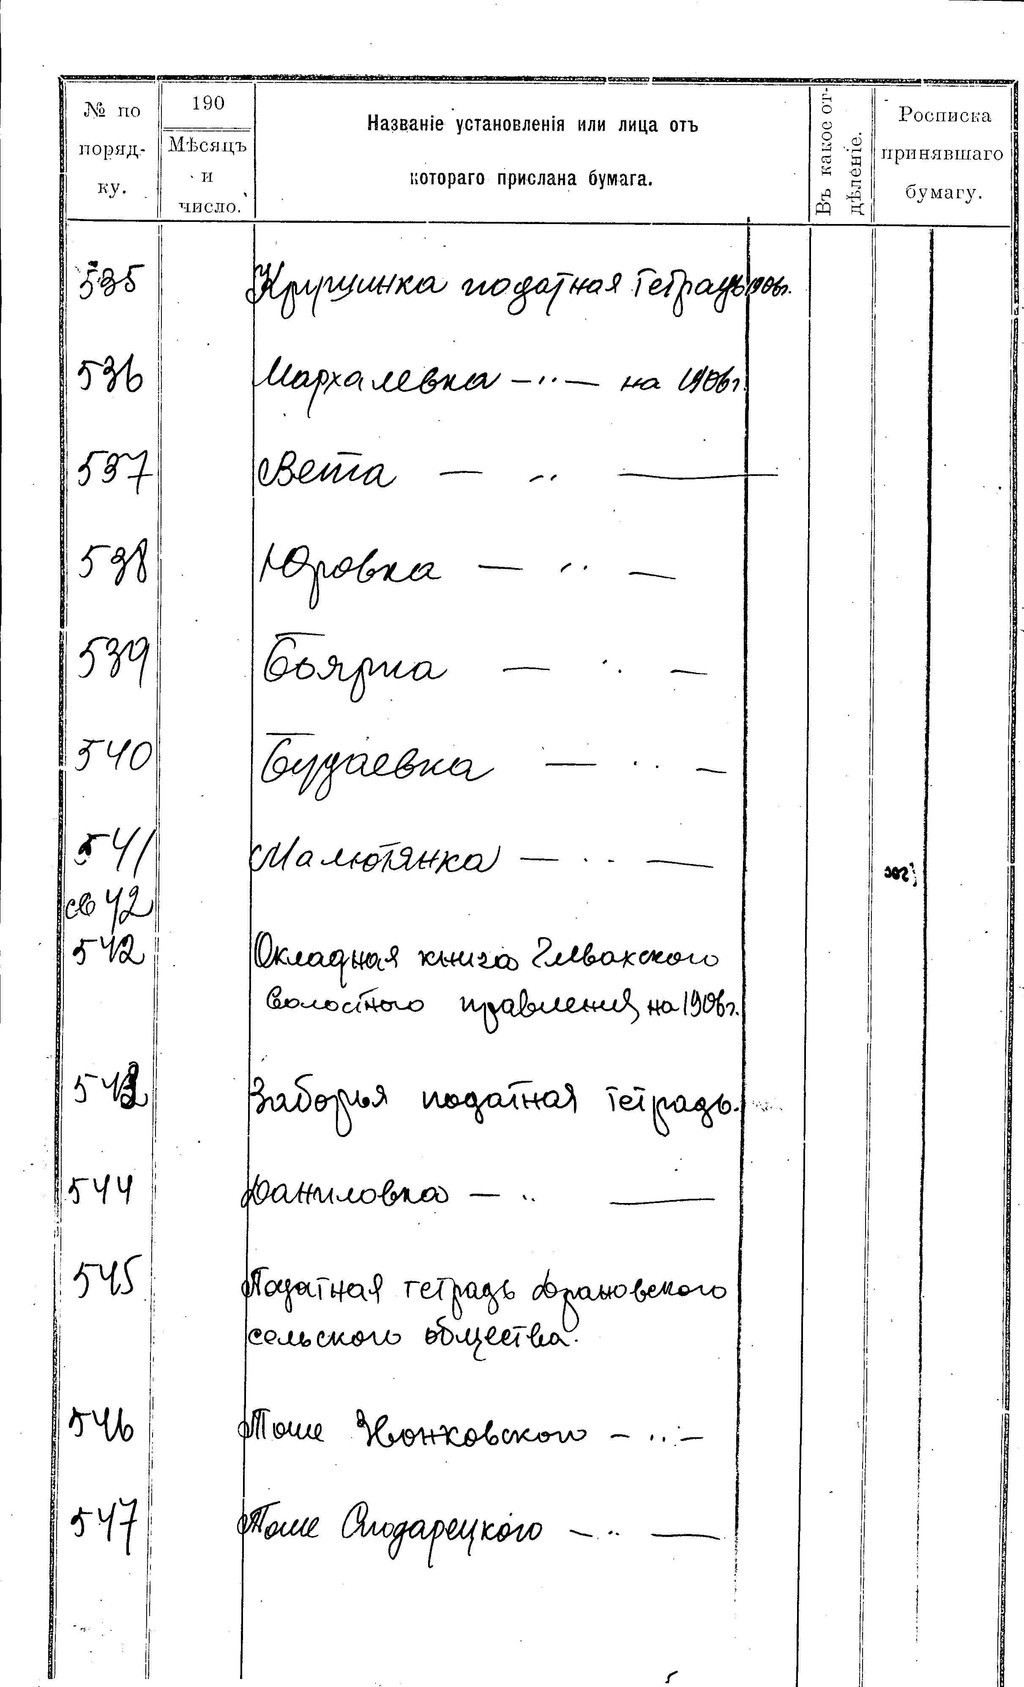 № по поряд- ку.
190
Мѣсяцъ и число.
Названіе установленія или лица отъ
котораго прислана бумага.
Въ какое от-
дѣленіе.
Росписка
принявшаго
бумагу.
535 Кругшинка податная тетрадь 1906г.
536 Мархалевка —"— на 1906г.
537 Вета — " —
538 Юровка — " —
539 Боярка — " —
540 Будаевка — " —
541 Малютянка — " —
св 42
542 Окладная книга Глевахского
волостного правления, на 1906г.
543 Заборья податная тетрадь.
544 Даниловка — " —
545 Податная тетрадь
сельского общества.
546 Тоже Звонковского — " —
547 Тоже — " —